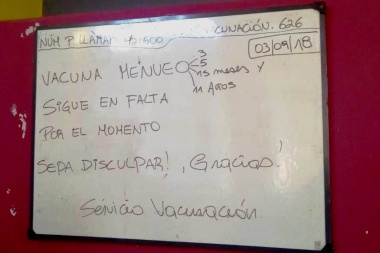 NÚM P LLAMAR 42-500 CUNACIÓN. 626
03/09/18
VACUNA MENVEO 3
5
15 meses y
11 Años
SIGUE EN FALTA
POR EL MOMENTO
SEPA DISCULPAR!, Gracias!
Servicio Vacunación